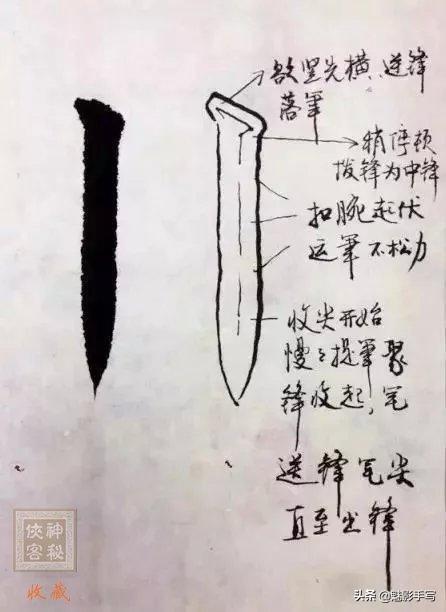 欲竖先横、逆锋
落筆
稍停顿
拨锋为中锋
扣腕起伏
运筆不松力
收尖开始
慢々提筆聚
锋收起，笔
送锋笔尖
直至出锋
神秘
侠客
收藏
头条@魅影手写